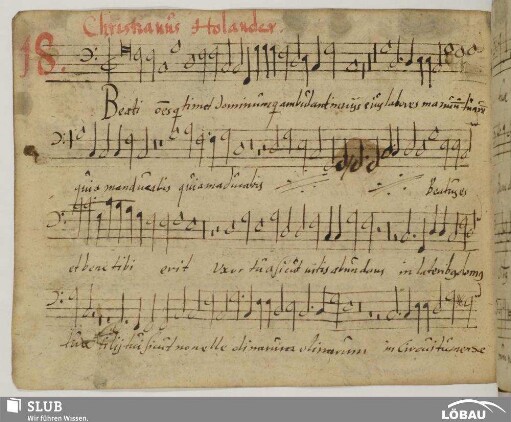 Christianus Holander.
18.
Beati oēs q̄ timēt dominum q̄ ambulant in vijs eius labores manuū tuarū
quia manducabis quia manducabis Beatus es
et bene tibi erit Uxor tua sicut vitis abundans in laterib9 domus
tuae filij tui sicut novelle olivarum olivarum in Circuitu
SLUB
Wir führen Wissen.
LÖBAU